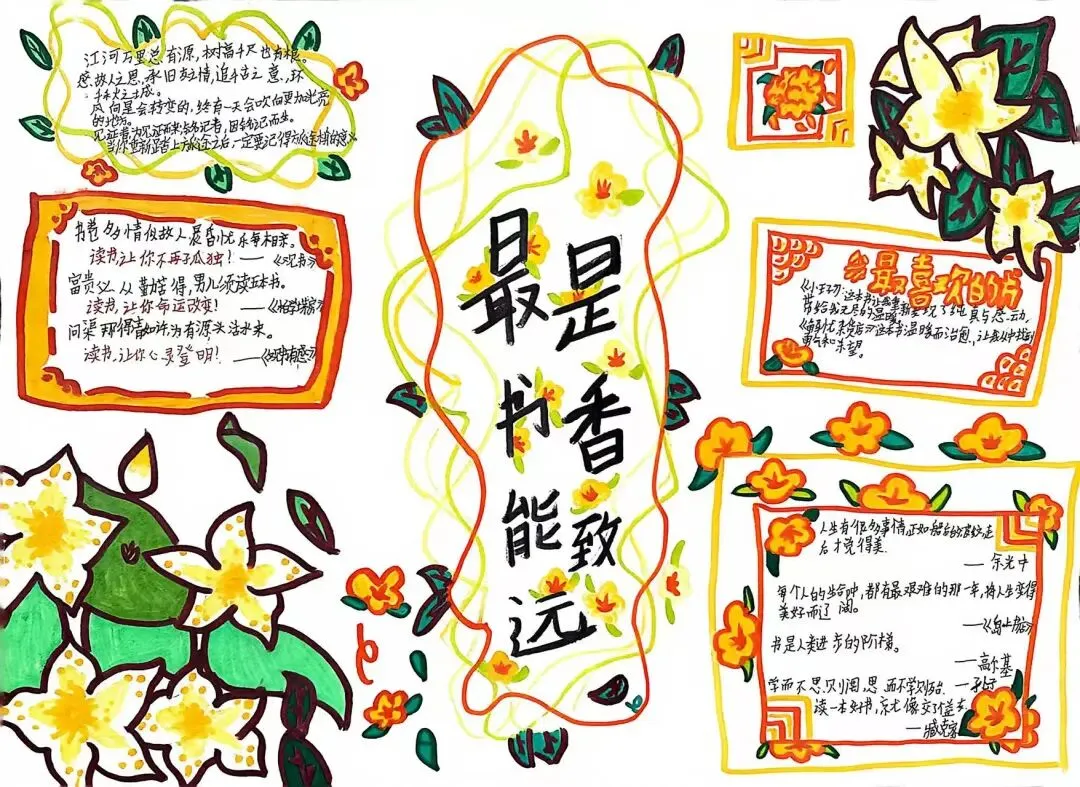 江河万里总有源，树高千尺也有根。
念故人之思，承旧友之情，追千古之意，环
风向是会转变的，终有一天会吹向更加光亮
的地方。
书卷多情似故人，晨昏忧乐每相亲。
读书，让你不再孤独！ ——《观书》
富贵必从勤苦得，男儿须读五车书。
读书，让你命运改变！
问渠那得清如许，为有源头活水来。
读书，让你心灵登明！
最是
书香
能致
远
我最喜欢的书
《小王子》这本书让我重新发现了纯真与感动。
带给我无尽的温暖
《解忧杂货店》这本书温暖而治愈，让我从中找到
勇气和希望。
人生有很多事情，正如船后的波纹，过
后才觉得美。
——余光中
每个人的生命中，都有最艰难的那一年，将人生变得
美好而辽阔。
——《岛上书店》
书是人类进步的阶梯。
——高尔基
学而不思则罔，思而不学则殆。 —孔子
读一本好书，就像交了个益友
—臧克家